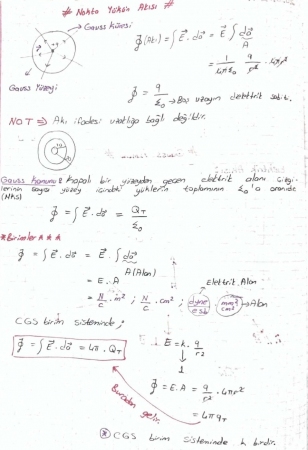 # Nokta Yükün Akısı #
Gauss Küresi
Φ (Akı) = ∫ E⃗ . da⃗ = E⃗ ∫ da⃗
A
= 1/4πε₀ q/r² . 4πr²
Gauss Yüzeyi
Φ = q/ε₀ → Boş uzayın elektrik sabiti.
NOT ⇒ Akı ifadesi uzaklığa bağlı değildir.
Gauss Kanunu: Kapalı bir yüzeyden geçen elektrik alanı çizgi-
lerinin sayısı yüzey içindeki yüklerin toplamının ε₀'a oranıdır
(MKS)
Φ = ∫ E⃗ . da⃗ = Q_T/ε₀
*Birimler***
Φ = ∫ E⃗ . da⃗ = E . ∫ da⃗
A (Alan)
= E . A
Elektrik Alan
= N/C . m² ; N/C . cm² ; dyne/esb . cm² → Alan
CGS birim sisteminde ;
Φ = ∫ E⃗ . da⃗ = 4π . Q_T
E = k . q/r²
1
Φ = E . A = q/r² . 4πr²
= 4π q_T
Buradan gelir.
* CGS birim sisteminde k birdir.